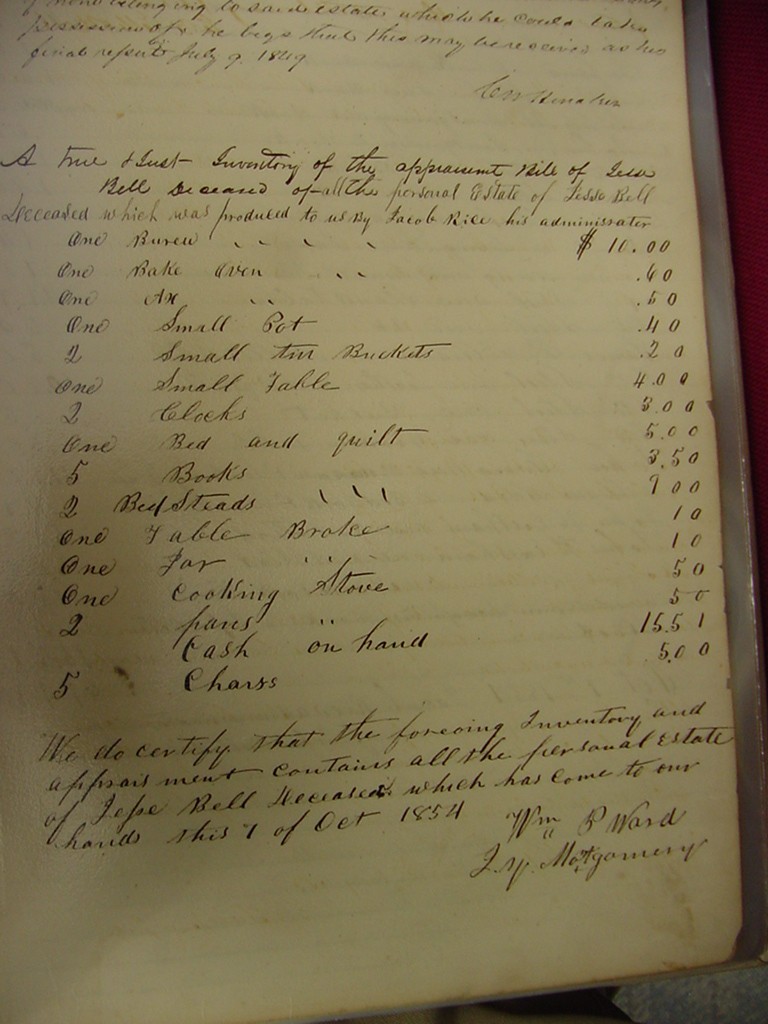 belonging to said estate which he could take
possession of he begs that this may be received as his
final report July 9. 1849
A True & Just Inventory of the appraisment Bill of Jesse
Bell Deceased of all the personal Estate of Jesse Bell
Deceased which was produced to us By Jacob Rice his administrater
One Bureu " " " " $ 10.00
One Bake Oven " " .60
One Ax " .50
One Small Pot .40
2 Small tin Buckets .20
One Small Table 4.00
2 Clocks 3.00
One Bed and quilt 5.00
5 Books 3.50
2 BedSteads " " " 9 00
One Table Broke 10
One Jar " " 10
One Cooking Stove 50
2 pans " 50
Cash on hand 15.51
5 Chairs 5.00
We do certify that the foreoing Inventory and
appraisment contains all the personal Estate
of Jesse Bell Deceased which has come to our
hands this 7 of Oct 1854
Wm P Ward
J. Y. Montgomery